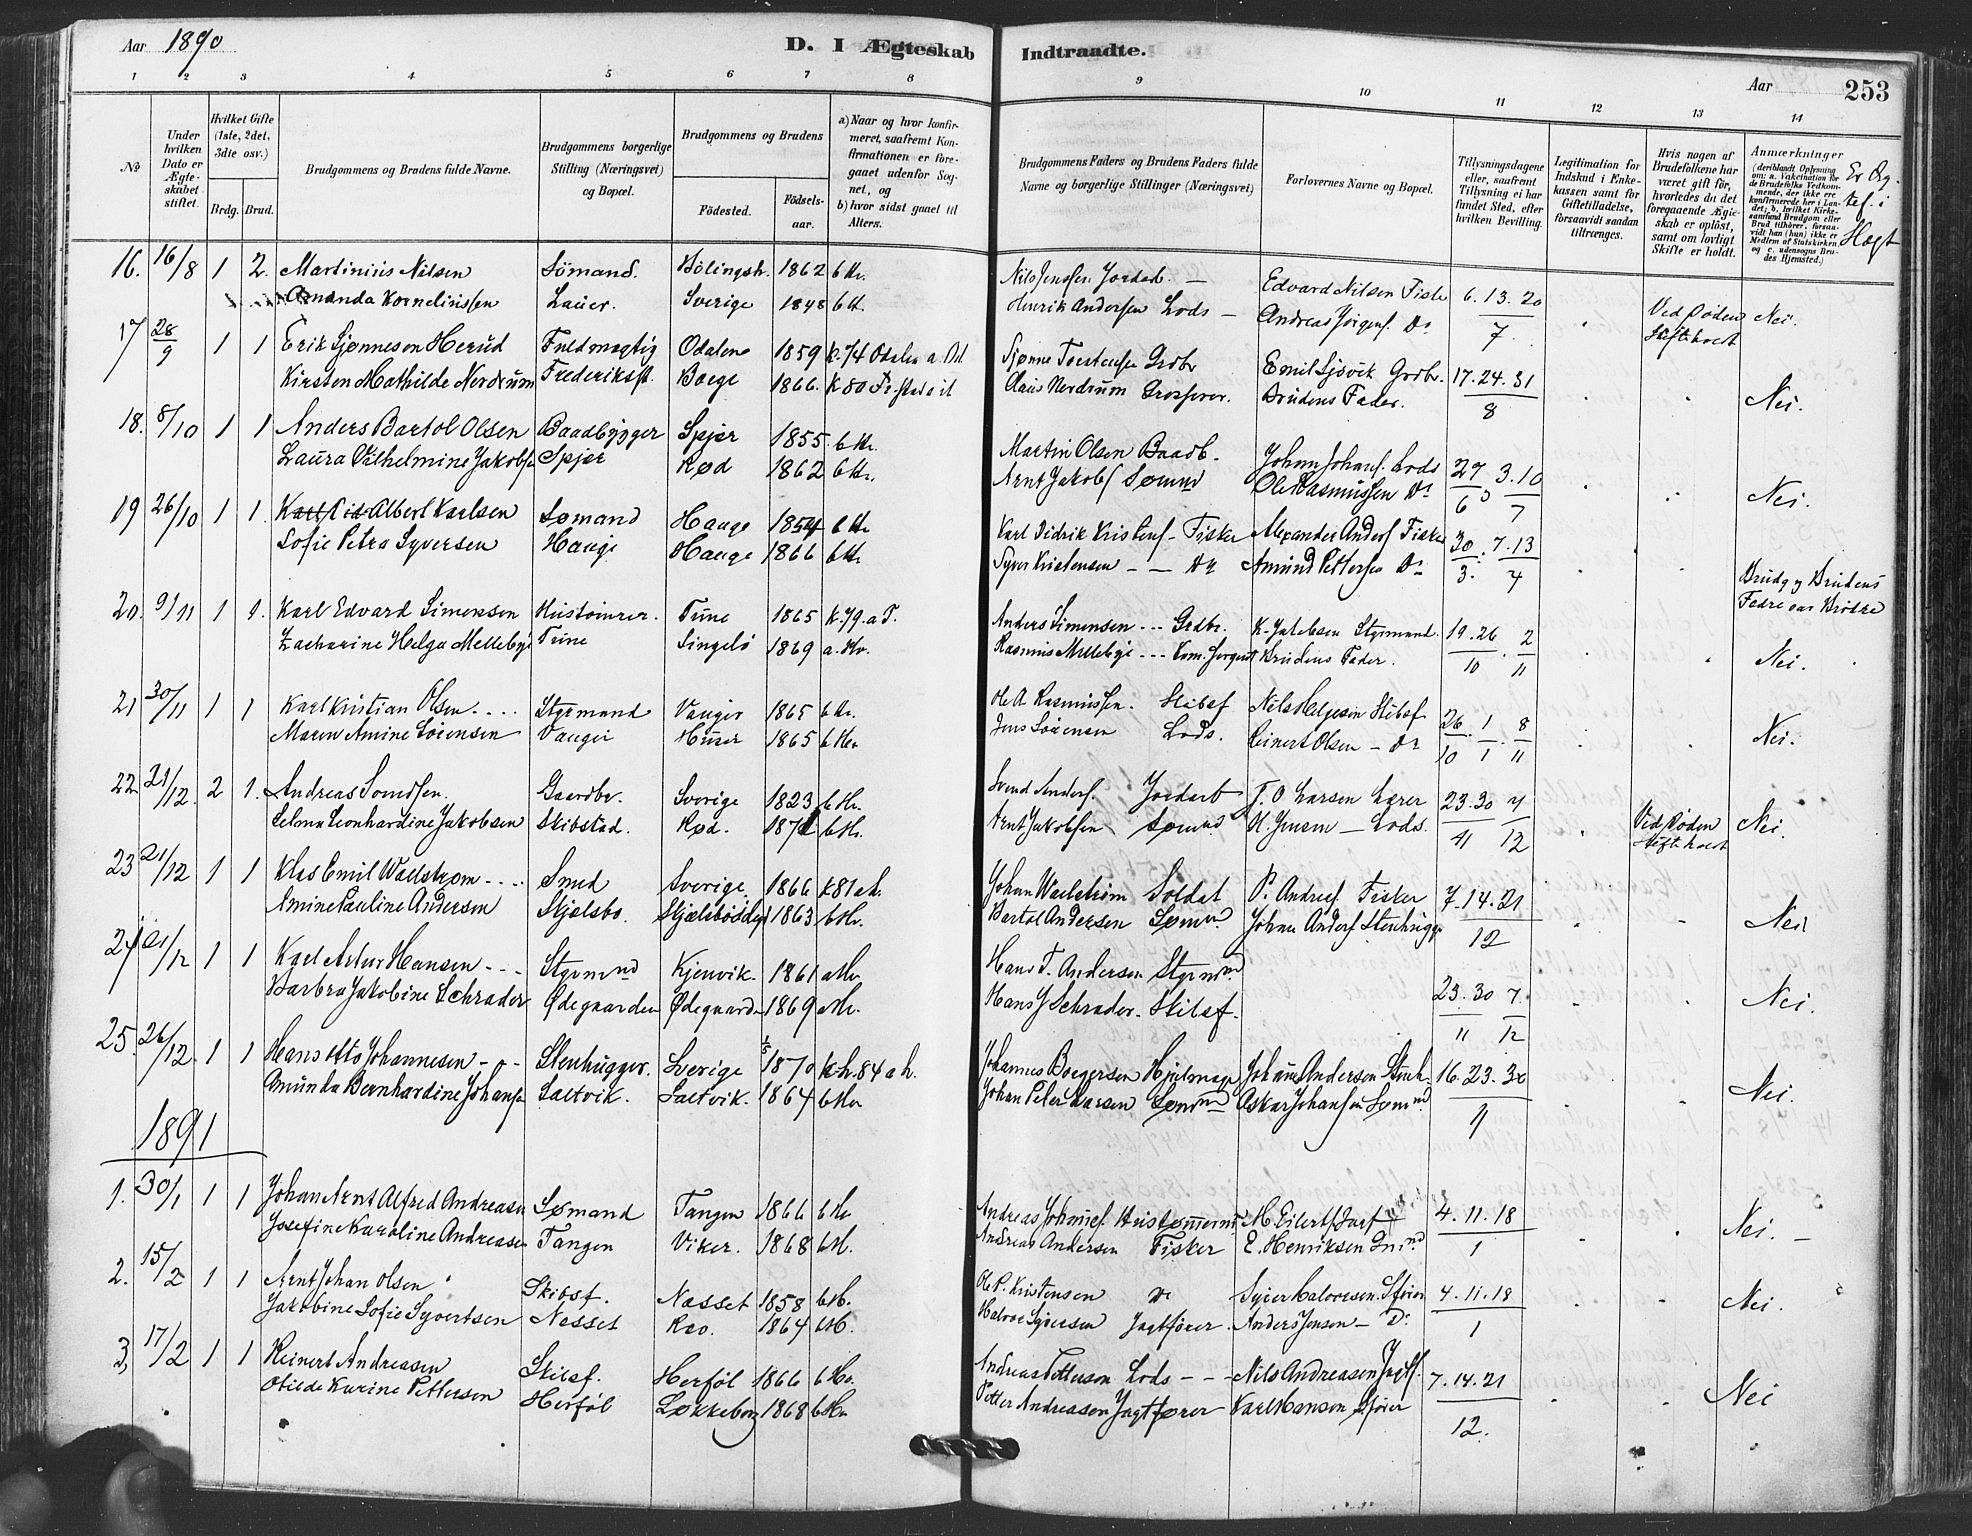 Aar 1890
D. I Ægteskab Indtraadte.
Aar 253
1 2 3 4 5 6 7 8 9 10 11 12 13 14
No.
Under hvilken Dato er Ægteskabet stiftet.
Hvilket Gifte (1ste, 2det, 3die osv.)
Brdg. Brud.
Brudgommens og Brudens fulde Navne.
Brudgommens borgerlige Stilling (Næringsvei) og Bopæl.
Brudgommens og Brudens
Fødested.
Fødselsaar.
a) Naar og hvor konfirmeret, saafremt Konfirmationen er foregaaet udenfor Sognet, og
b) hvor sidst gaaet til Alters.
Brudgommens Faders og Brudens Faders fulde Navne og borgerlige Stillinger (Næringsvei)
Forlovernes Navne og Bopæl.
Tillysningsdagene eller, saafremt Tillysning ei har fundet Sted, efter hvilken Bevilling.
Legitimation for Indskud i Enkekassen samt for Giftetilladelse, forsaavidt saadan tiltrænges.
Hvis nogen af Brudefolkene har været gift før, hvorledes du det foregaaende Ægteskab er opløst, samt om lovligt Skifte er holdt.
Anmærkninger
16. 16/8 1 2. Martinius Nilsen Sømand. 1862 Nils Jenssen Jordab. — Edvard Nilsen Fisker 6. 13. 20
Amanda Kornelinssen Lauer. Sverige 1848 Henrik Andersen Lods — Andreas Jørgens. Do 7 Ved Døden Nei.
Skifte holdt
17 28/9 1 1 Erik Sjønneson Herud Fuldmægtig Odalen 1859 k. 74 Odalen Sjønne Torstensen Grdbr Emil Sjøvik Grdbr. 17. 24. 31
Kirsten Mathilde Nordrum Frederikst. Borge 1866. k 80 Claus Nordrum Grosserer. Brudens Fader. 8 Nei.
18. 8/10 1 1 Anders Bartol Olsen Baadbygger Spjær 1855. Martin Olsen Baadb. Johan Johans. Lods 27 3. 10
Laura Vilhelmine Jakobsen Spjær Rød 1862 Arnt Jakobs Sømnd Ole Rasmussen Do 6 7 Nei.
19 26/10 1 1 Albert Karlsen Sømand Hauge 1854 Karl Didrik Kristens. - Fisker Alexander Anders Fisker 30. 7. 13
Sofie Petra Syversen Hauge Hauge 1866 Syver Kristensen — — Do Amund Pettersen Do 3. 4
20. 9/11 1 1. Karl Edvard Simensen Hustømrer. Tune 1865 k. 79. a T. Anders Simensen - - - Grdbr. K. Jakobsen Styrmand. 19. 26 2 Brudg og Brudens
Fædre var Brødre
Zacharine Helga Mellebye Tune Singelø 1869 Rasmus Mellebye - - - Kom. Sergent Brudens Fader. 10 11 Nei.
21 30/11 1 1 Karl Kristian Olsen. . . . Styrmand Vauger 1865 Ole A Rasmussen. Skibsf Nils Helgesen Skibsf 26. 1. 8
Maren Amine Sørensen Vauger Huser 1865 Jens Sørensen Lods. Reinert Olsen — Do 10 1 11 Nei.
22. 21/12. 2 1. Andreas Svendsen. Gaardbr. Sverige 1823 Svend Anders. Jordarb J. O Larsen Lærer 23. 30 7
Selma Leonhardine Jakobsen Skibstad. Rød. 1871 Arnt Jakobsen Sømnd H. Jensen — Lods. 11 12 Ved Døden Nei.
Skifte holdt
23 21/12 1 1 Klas Emil Waelstrøm - . . . Smed Sverige. 1866 Johan Waelstrøm Soldat P. Andreas. Fisker 7. 14. 21
Amine Pauline Andersen Skjælsbo. 1863 Bartol Andersen Sømnd. Johan Anders Stenhugger 12 Nei
24 21/12 1 1 Karl Artur Hansen - . . Styrmnd Kjenvik. 1861 Hans T. Andersen Styrmnd
Barbra Jakobine Schrader Ødegaarden Ødegaarden 1869 Hans J Schrader. Skibsf. 23. 30 7. 11 12 Nei.
25. 26/12. 1 1 Hans Otto Johannesen - - Stenhugger. Sverige 1870 Johannes Boegersen Johan Andersen Stenh. 16. 23. 30
Amunda Bernhardine Johansen Saltvik. Saltvik. 1864 Johan Peter Larsen Sømnd Oskar Johansen Sømnd. 11 Nei.
1891
1. 30/1 1 1 Johan Arnt Alfred Andreasen Sømand Tangen 1866 Andreas Johannes. 4. 11. 18
Josefine Karoline Andreasen Tangen Viker. 1868 Andreas Andersen Fisker E. Henriksen 1 Nei. —
2. 15/2 1 1 Arnt Johan Olsen Skibsf. Næsset 1858 Ole P. Kristensen Do Syver Halvorsen Sfører 4. 11. 18
Jakobine Sofie Syvertsen Næsset 1864 Halvor Syversen Jagtfører. Anders Jensen — Do 1 Nei.
3, 17/2 1 1 Reinert Andreasen Skibsf. Herføl 1866 Andreas Petterson Lods - - - Nils Andreasen Jagtf. 7. 14. 21
Otilde Karine Pettersen Herføl Løkkeberg 1868 Petter Andreasen Jagtfører Karl Hansen Sfører 12. Nei